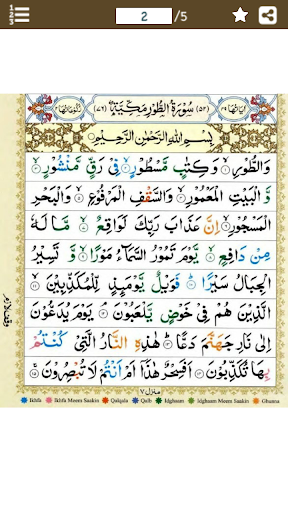 2 /5
سُوْرَةُ الطُّوْرِ مَكِّيَّةٌ
بِسْمِ اللّٰهِ الرَّحْمٰنِ الرَّحِيْمِ
وَالطُّوْرِ ۙ﴿۱﴾ وَكِتٰبٍ مَّسْطُوْرٍ ۙ﴿۲﴾ فِىْ رَقٍّ مَّنْشُوْرٍ ۙ﴿۳﴾
وَّالْبَيْتِ الْمَعْمُوْرِ ۙ﴿۴﴾ وَالسَّقْفِ الْمَرْفُوْعِ ۙ﴿۵﴾ وَالْبَحْرِ
الْمَسْجُوْرِ ۙ﴿۶﴾ اِنَّ عَذَابَ رَبِّكَ لَوَاقِعٌ ۙ﴿۷﴾ مَّا لَهٗ
مِنْ دَافِعٍ ۙ﴿۸﴾ يَّوْمَ تَمُوْرُ السَّمَآءُ مَوْرًا ۙ﴿۹﴾ وَّتَسِيْرُ
الْجِبَالُ سَيْرًا ؕ﴿۱۰﴾ فَوَيْلٌ يَّوْمَئِذٍ لِّلْمُكَذِّبِيْنَ ۙ﴿۱۱﴾
الَّذِيْنَ هُمْ فِىْ خَوْضٍ يَّلْعَبُوْنَ ۘ﴿۱۲﴾ يَوْمَ يُدَعُّوْنَ
اِلٰى نَارِ جَهَنَّمَ دَعًّا ؕ﴿۱۳﴾ هٰذِهِ النَّارُ الَّتِىْ كُنْتُمْ
بِهَا تُكَذِّبُوْنَ ﴿۱۴﴾ اَفَسِحْرٌ هٰذَاۤ اَمْ اَنْتُمْ لَا تُبْصِرُوْنَ ۚ﴿۱۵﴾
وقف لازم
منزل ۷
Ikhfa Ikhfa Meem Saakin Qalqala Qalb Idghaam Idghaam Meem Saakin Ghunna